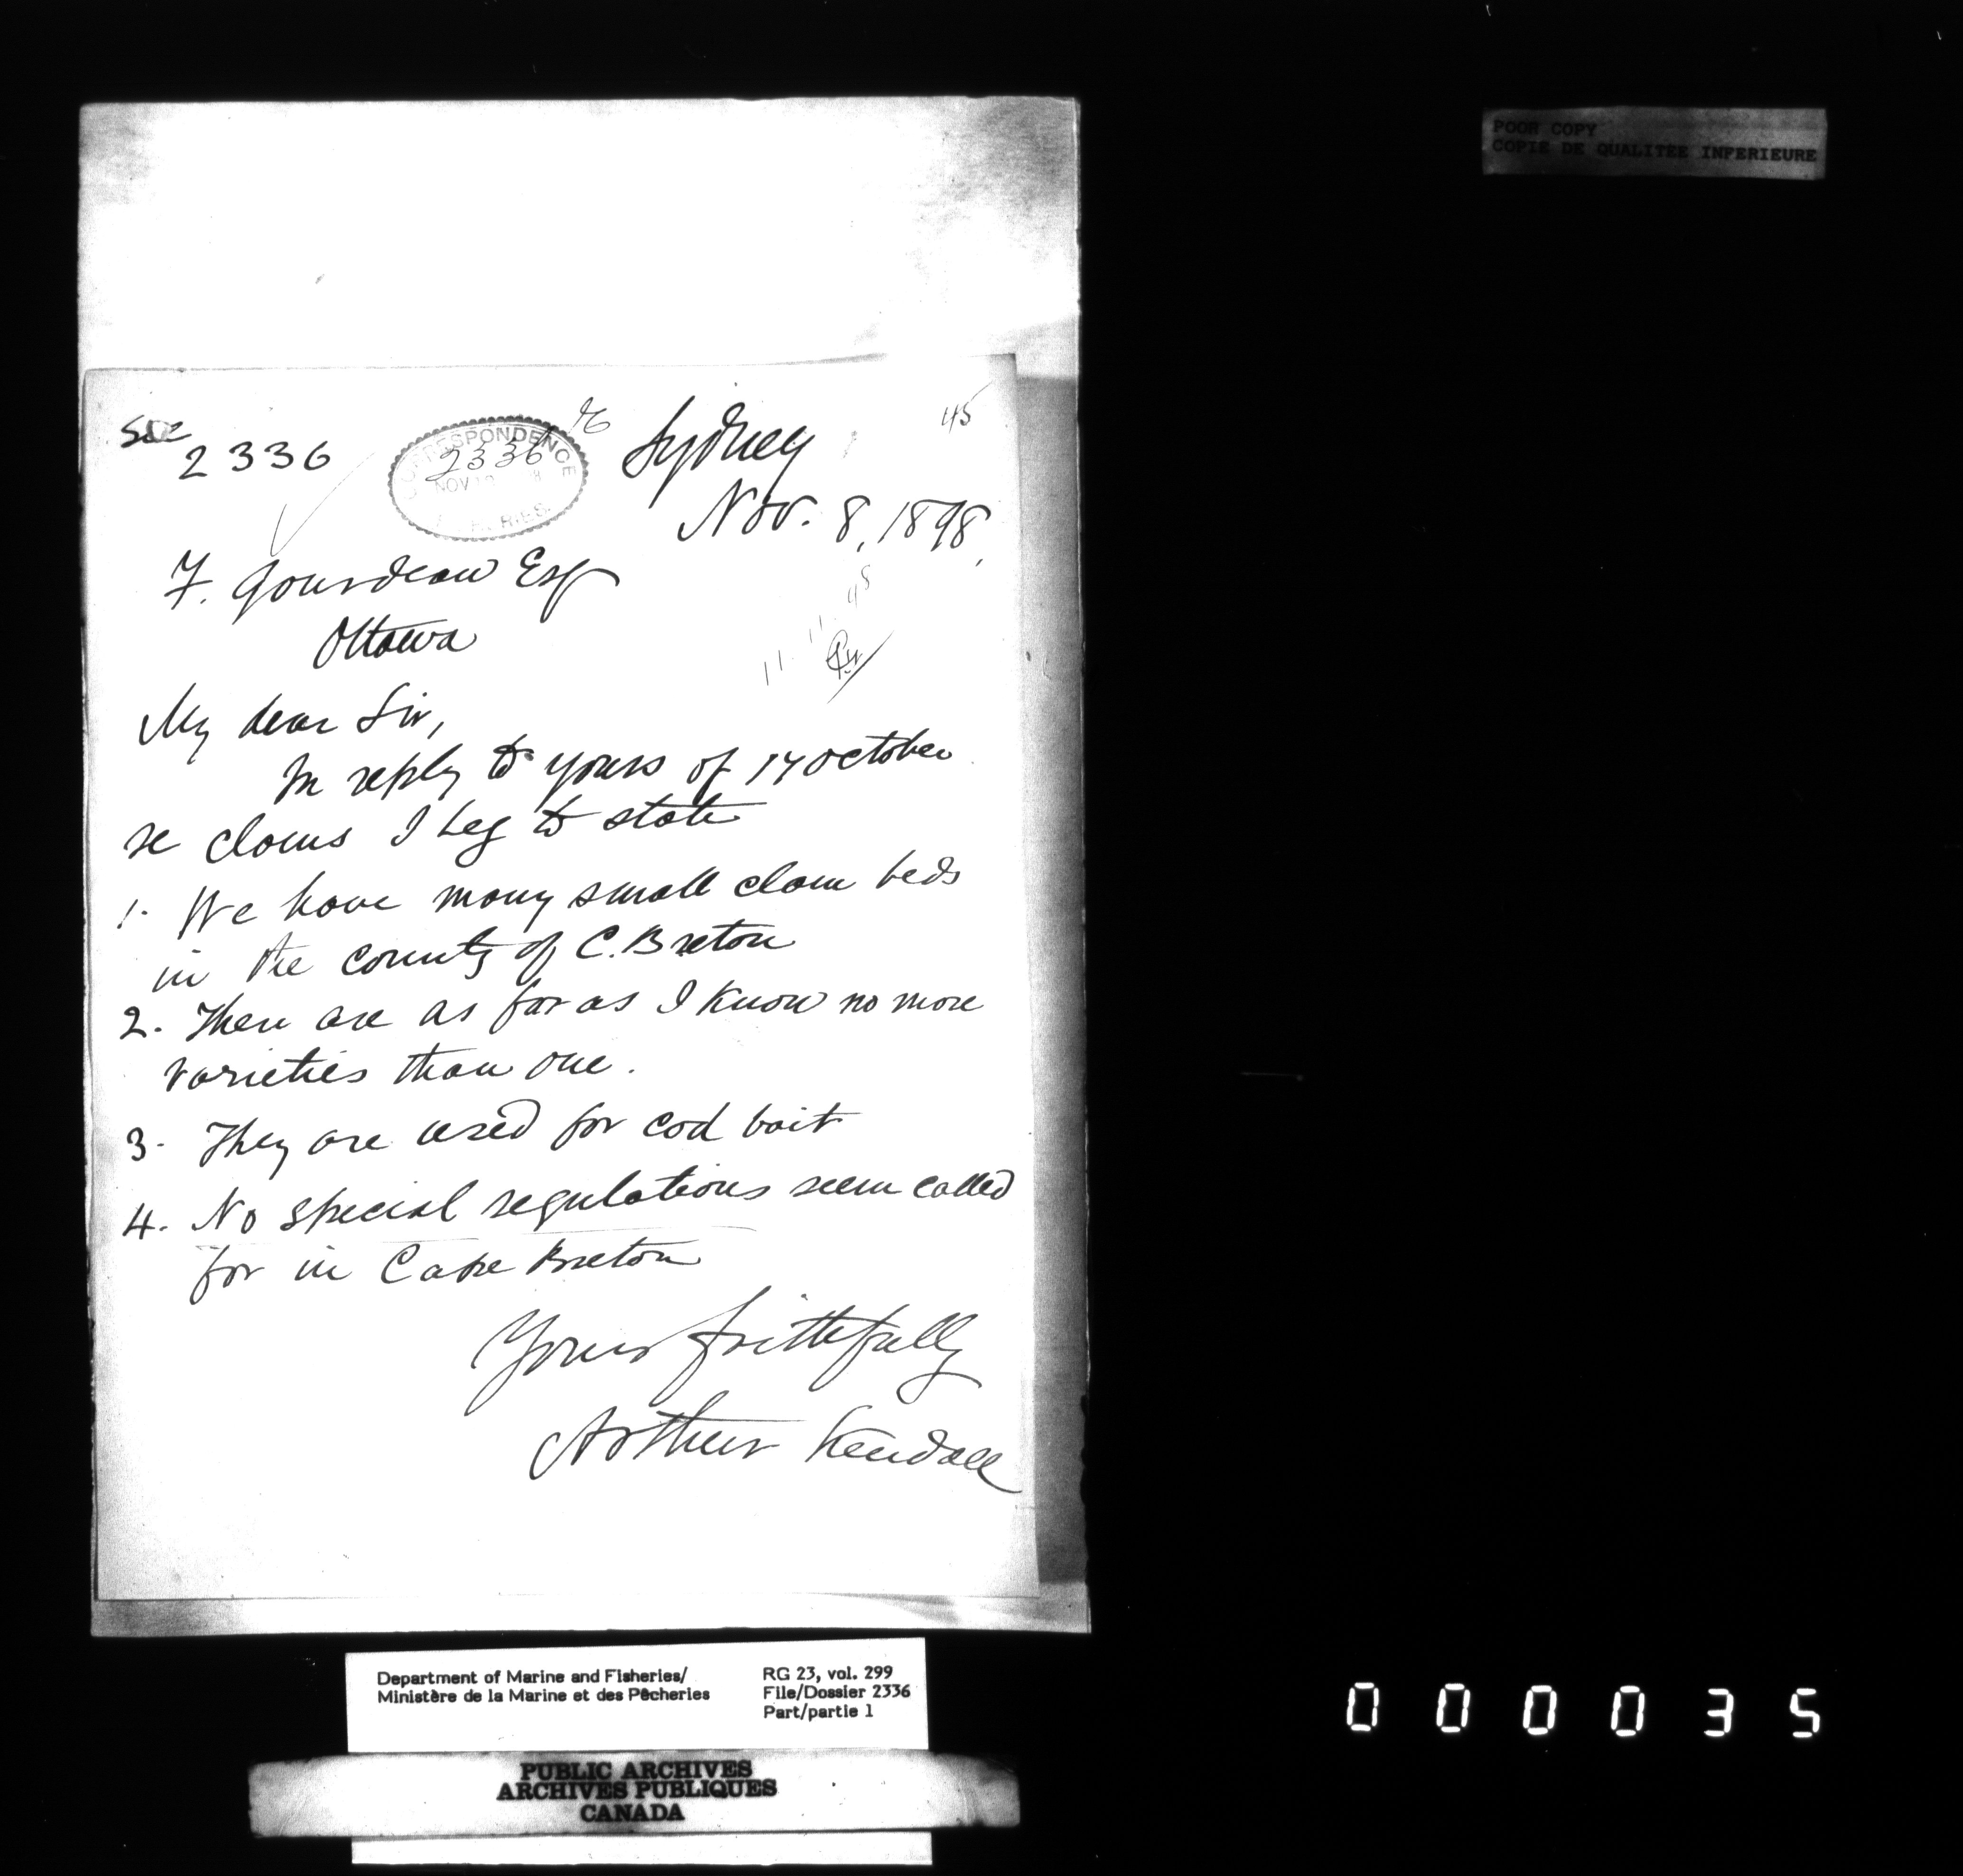 POOR COPY
COPIE DE QUALITEE INFERIEURE
45
See
2336
CORRESPONDENCE
2336
NOV 10
Sydney
Nov. 8, 1898,
F. Gourdeau Esq
Ottawa
45
11
11
My dear Sir,
In reply to yours of 17 October
re clams I beg to state
1. We have many small clam beds
in the county of C. Breton
2. There are as far as I know no more
varieties than one.
3. They are used for cod bait
4. No special regulations seem called
for in Cape Breton
Yours faithfully
Arthur Kendall
Department of Marine and Fisheries/
Ministère de la Marine et des Pêcheries
RG 23, vol. 299
File/Dossier 2336
Part/partie 1
PUBLIC ARCHIVES
ARCHIVES PUBLIQUES
CANADA
000035